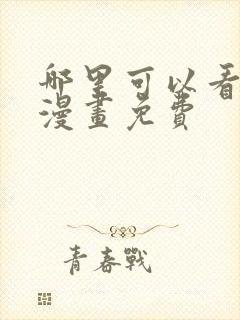 哪里可以看
漫畫免費
青春戰